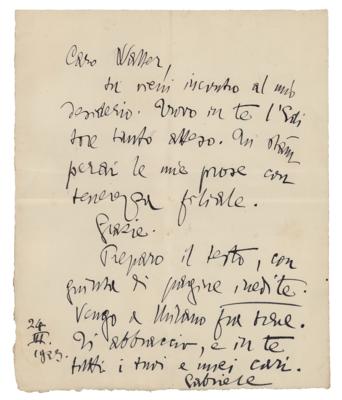 Caro Walter,
tu vieni incontro al mio
desiderio. Trovo in te l'Edi
tore tanto atteso. Tu stam
perai le mie prose con
tenerezza filiale.
Grazie.
Preparo il testo, con
giunta di pagine inedite.
Vengo a Milano fra
Ti abbraccio, e in te
tutti i tuoi e miei cari.
24
III.
1923.
Gabriele